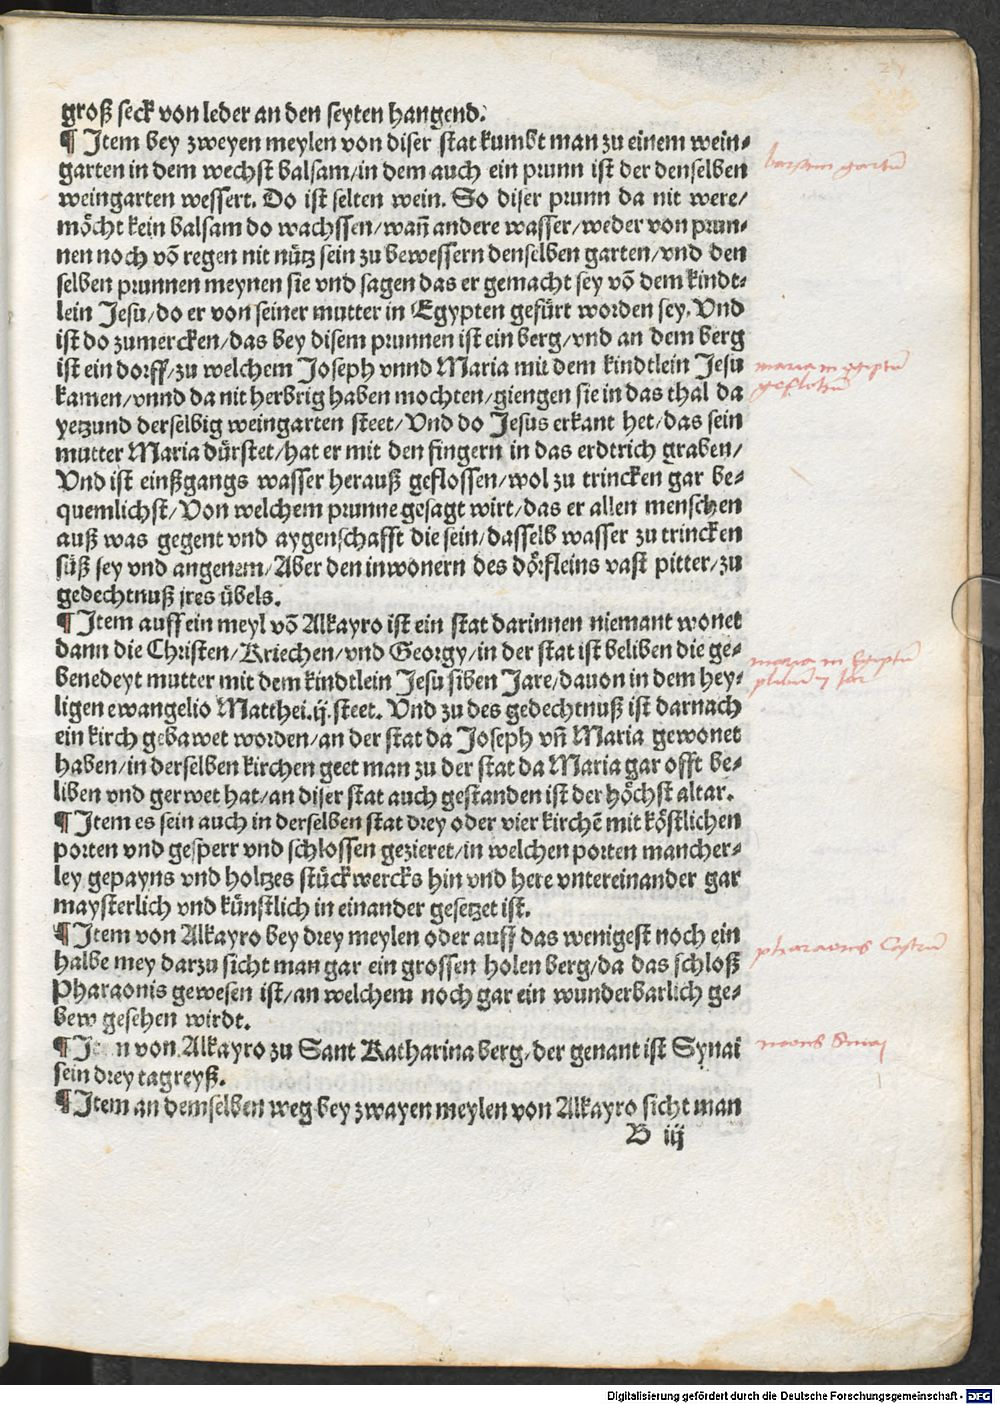 groß seck von leder an den seyten hangend.
¶ Item bey zweyen meylen von diser stat kumbt man zu einem wein-
garten in dem wechst balsam/in dem auch ein prunn ist der denselben
weingarten wessert. Do ist selten wein. So diser prunn da nit were/
möcht kein balsam do wachssen/wan̄ andere wasser/weder von prun-
nen noch vō regen nit nütz sein zu bewessern denselben garten/vnd den
selben prunnen meynen sie vnd sagen das er gemacht sey vō dem kindt-
lein Jesu/do er von seiner mutter in Egypten gefürt worden sey. Vnd
ist do zumercken/das bey disem prunnen ist ein berg/vnd an dem berg
ist ein dorff/zu welchem Joseph vnnd Maria mit dem kindtlein Jesu
kamen/vnnd da nit herbrig haben mochten/giengen sie in das thal da
yetzund derselbig weingarten steet/Vnd do Jesus erkant het/das sein
mutter Maria dürstet/hat er mit den fingern in das erdtrich graben/
Vnd ist einßgangs wasser herauß geflossen/wol zu trincken gar be-
quemlichst/Von welchem prunne gesagt wirt/das er allen menschen
auß was gegent vnd aygenschafft die sein/dasselb wasser zu trincken
süß sey vnd angenem/Aber den inwonern des dörfleins vast pitter/zu
gedechtnuß jres übels.
¶ Item auff ein meyl vō Alkayro ist ein stat darinnen niemant wonet
dann die Christen/Kriechen/vnd Georgy/in der stat ist beliben die ge-
benedeyt mutter mit dem kindtlein Jesu siben Jare/dauon in dem hey-
ligen ewangelio Matthei.ij.steet. Vnd zu des gedechtnuß ist darnach
ein kirch gebawet worden/an der stat da Joseph vn̄ Maria gewonet
haben/in derselben kirchen geet man zu der stat da Maria gar offt be-
liben vnd gerwet hat/an diser stat auch gestanden ist der höchst altar.
¶ Item es sein auch in derselben stat drey oder vier kirchē mit köstlichen
porten vnd gesperr vnd schlossen gezieret/in welchen porten mancher-
ley gepayns vnd holtzes stückwercks hin vnd here vntereinander gar
maysterlich vnd künstlich in einander gesetzet ist.
¶ Item von Alkayro bey drey meylen oder auff das wenigest noch ein
halbe mey darzu sicht man gar ein grossen holen berg/da das schloß
Pharaonis gewesen ist/an welchem noch gar ein wunderbarlich ge-
bew gesehen wirdt.
¶ Item von Alkayro zu Sant Katharina berg/der genant ist Synai
sein drey tagreyß.
¶ Item an demselben weg bey zwayen meylen von Alkayro sicht man
B iij
balsam gartū
maria in egiptū
maria in Egiptū
pharaonis Castrū
mons Sinaj
Digitalisierung gefördert durch die Deutsche Forschungsgemeinschaft - DFG